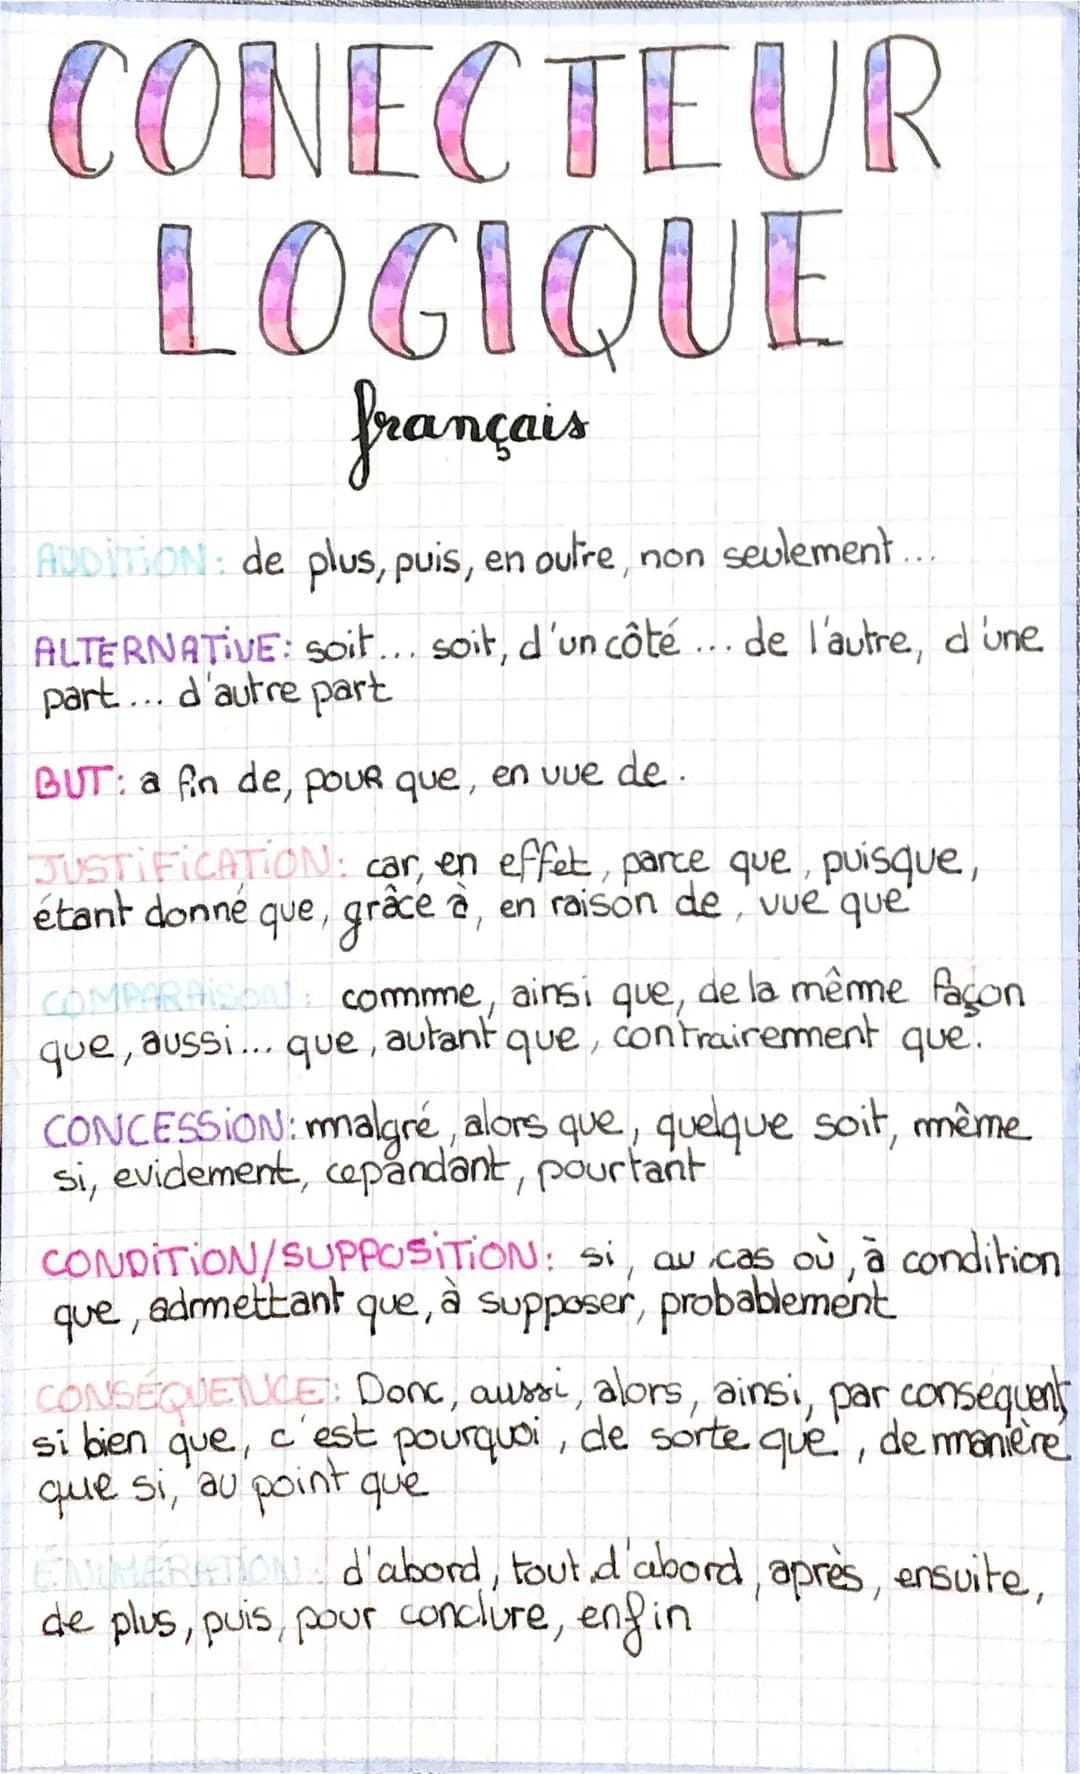 CONECTEUR
LOGIQUE
français
ADDITION: de plus, puis, en outre, non seulement...
ALTERNATIVE: soit... soit, d'un côté ... de l'autre, d'une
part... d'autre part
BUT: a fin de, pour que, en vue de.
JUSTIFICATION: car, en effet, parce que, puisque,
étant donné que, grâce à, en raison de, vue que
COMPARAISON: comme, ainsi que, de la même façon
que, aussi... que, autant que, contrairement que.
CONCESSION: malgré, alors que, quelque soit, même
si, evidement, cepandant, pourtant
CONDITION/SUPPOSITION: si, au cas où, à condition
que, admettant que, à supposer, probablement
CONSÉQUENCE: Donc, aussi, alors, ainsi, par consequent
si bien que, c'est pourquoi, de sorte que, de manière
que si, au point que
ÉNUMÉRATION: d'abord, tout d'abord, après, ensuite,
de plus, puis, pour conclure, enfin